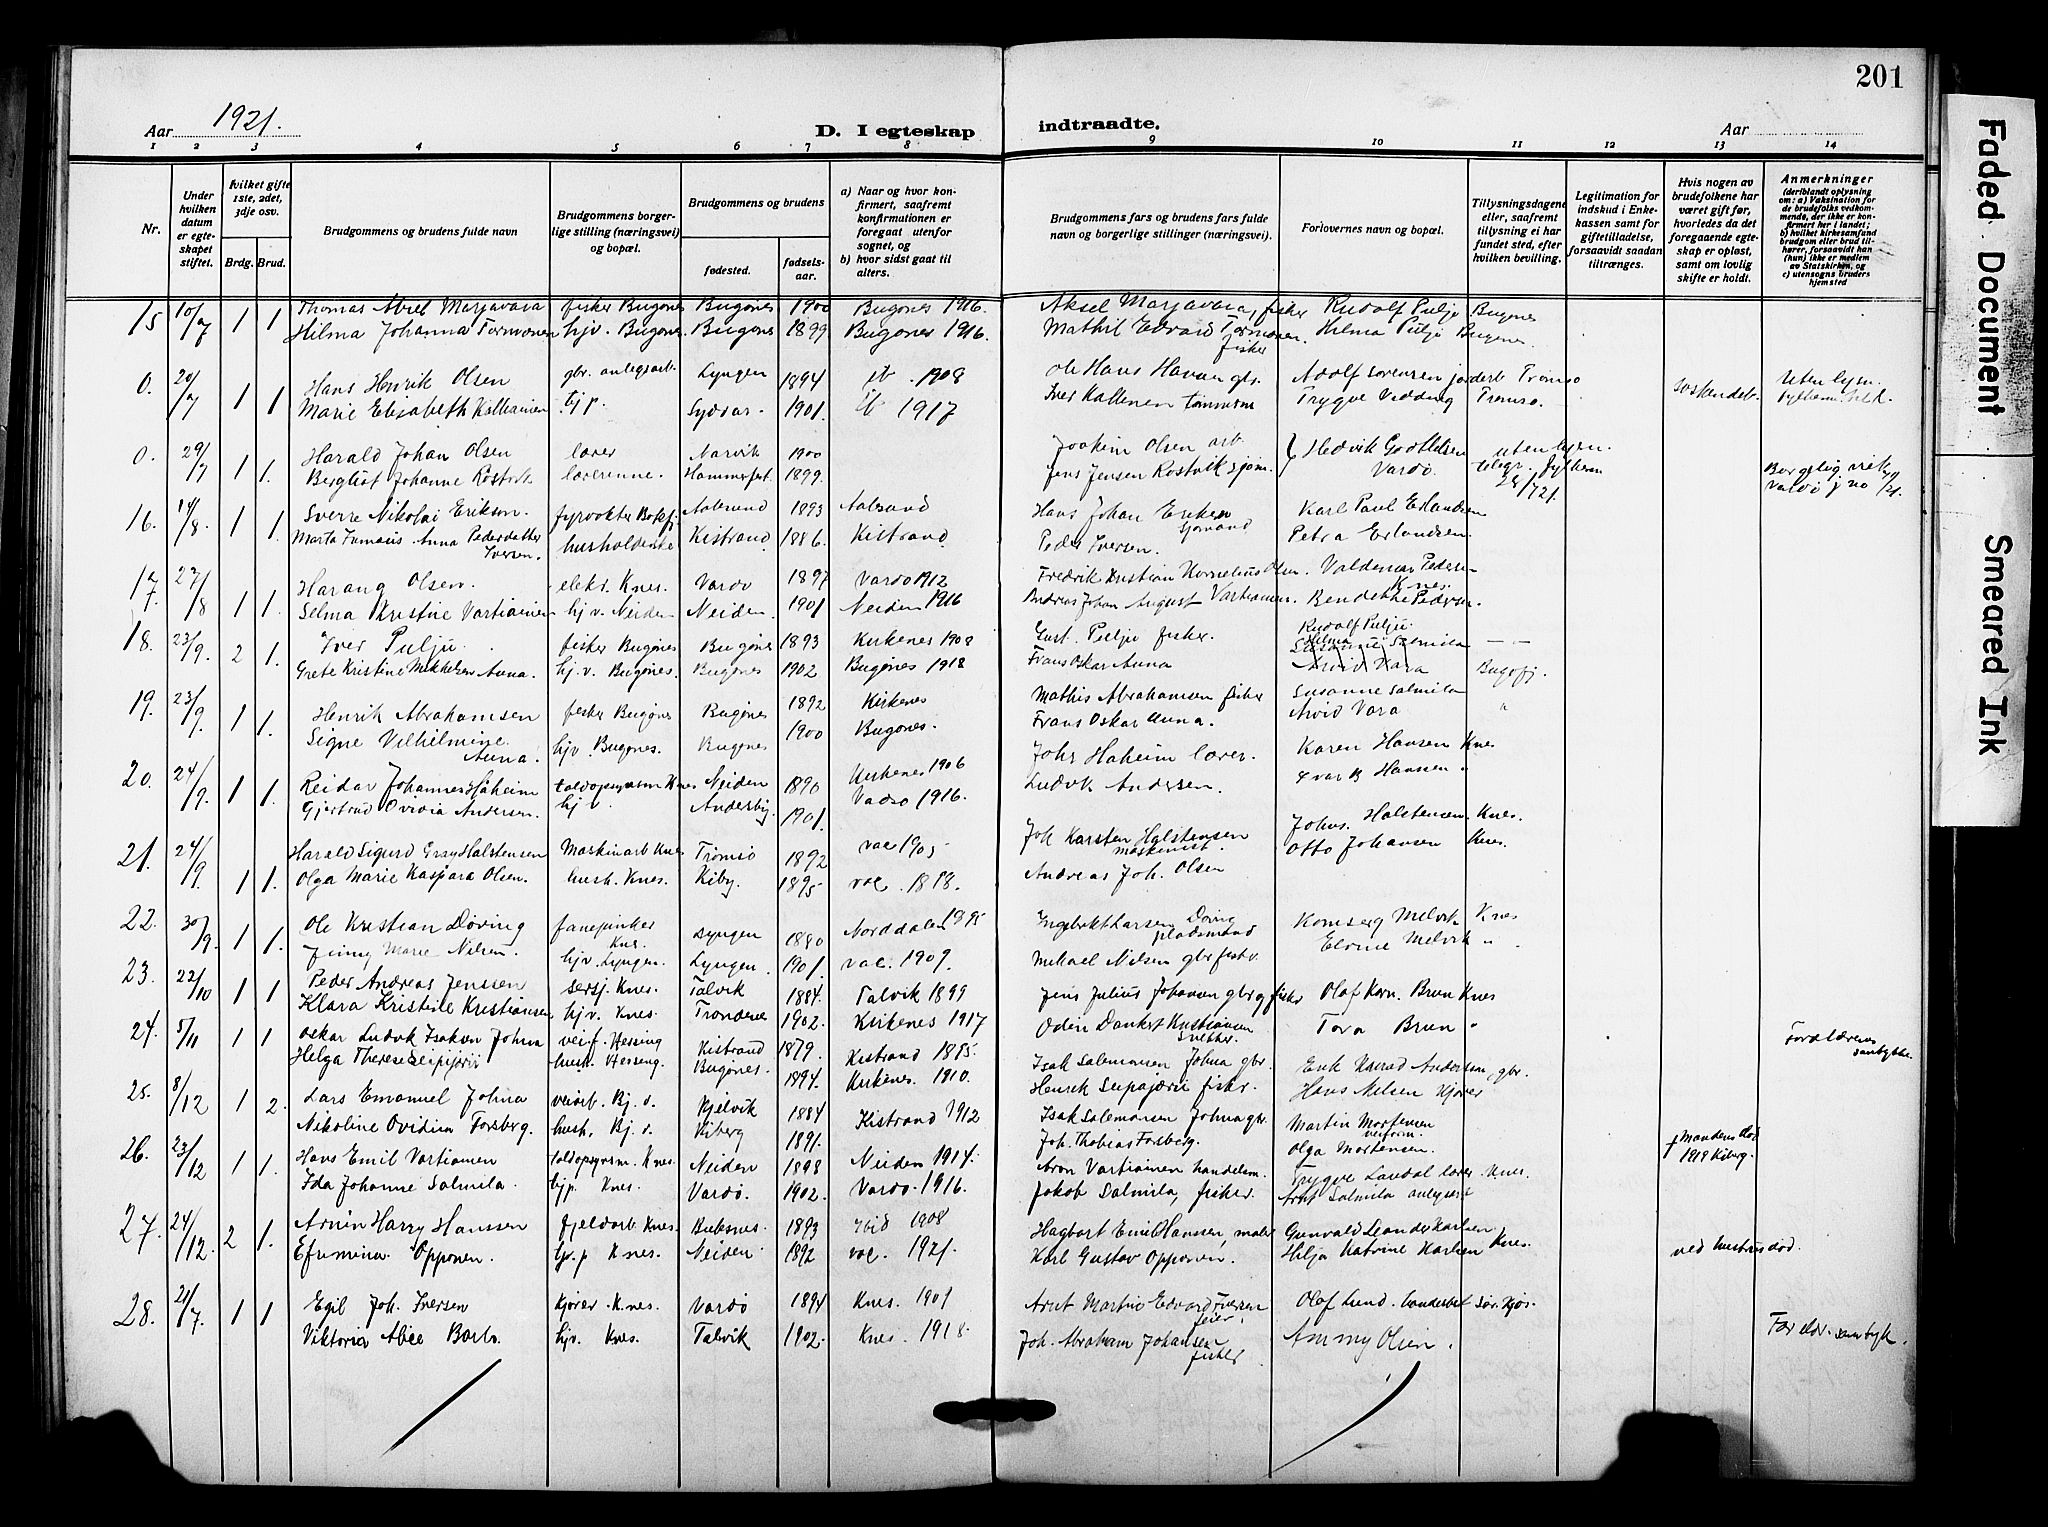 201
Aar 1921.
D. I egteskap indtraadte.
Aar
1 2 3 4 5 6 7 8 9 10 11 12 13 14
Nr.
Under hvilken datum er egteskapet stiftet.
Hvilket gifte 1ste, 2det, 3dje osv.
Brdg. Brud.
Brudgommens og brudens fulde navn
Brudgommens borgerlige stilling (næringsvei) og bopæl.
Brudgommens og brudens
fødested.
fødselsaar.
a) Naar og hvor konfirmert, saafremt konfirmationen er foregaat utenfor sognet, og
b) hvor sidst gaat til alters.
Brudgommens fars og brudens fars fulde navn og borgerlige stillinger (næringsvei).
Forlovernes navn og bopæl.
Tillysningsdagene eller, saafremt tillysning ei har fundet sted, efter hvilken bevilling.
Legitimation for indskud i Enkekassen samt for giftetilladelse, forsaavidt saadan tiltrænges.
Hvis nogen av brudefolkene har været gift før, hvorledes da det foregaaende egteskap er opløst, samt om lovlig skifte er holdt.
Anmerkninger (deriblandt oplysning om: a) Vaksination for de brudefolks vedkommende, der ikke er konfirmert her i landet; b) hvilket kirkesamfund brudgom eller brud tilhører, forsaavidt han (hun) ikke er medlem av Statskirken, og c) utensogns bruders hjemsted
15 10/7 1 1 Thomas Aksel Marjavara fisker Bugønes Bugønes 1900 Bugønes 1916. Aksel Marjavara, fisker Rudolf Pulju Bugnes
Hilma Johanna Tormænen hjv. Bugønes Bugønes 1899 Bugønes 1916. Mathil Edvard Tormænen. fisker Hilma Pulju Bugønes.
0. 20/7 1 1 Hans Henrik Olsen gbr. anlegsarb. Lyngen 1894 1908 Ole Hans Hansen gbr. Adolf Sørensen Tromsø
Marie Elisabeth tjp. Sydvar. 1901. 1917 Iver tømmerm Trygve Vedding Tromsø. Uten lysn.
0. 29/7 1 1. Harald Johan Olsen lærer Narvik 1900 Joakim Olsen arb. Hedvik Godtlibsen Vardø. uten lysn.
Bergliot Johanne Rostvik lærerinne. Hammerfest 1899. Jens Jensen Rostvik sjøm. telegr. fylkesm 28/7 21. Borgelig viet Vardø j no /21.
16. 14/8. 1 1. Sverre Nikolai Erikson. fyrvokter Bøkfj. Aalesund 1893 Aalesund Hans Johan Eriksen sjømand Karl Paul Erlandsen
Marta Tomasis Anna Pedersdatter Iversen. husholderske Kistrand 1886. Kistrand. Peder Iversen. Petra Erlandsen.
17. 27/8 1 1. Harang Olsen. elekr. Knes. Vardø 1897 Vardø 1912 Fredrik Kristian Kornelius Olsen. Valdemar Pedersen Knes.
Selma Kristine Vartiainen hjv. Neiden Neiden. 1901 Neiden 1916 Andreas Johan August Vartiainen. Bendikte Pedersen.
18. 23/9. 2 1. Iver Pulju. fisker Bugønes Bugønes 1893 Kirkenes 1908 Gust. Pulju fisker. Rudolf Pulju. Hilma Susanne Salmila — —
Grete Kristine Mikkelsen Auna. hj.v. Bugønes. Bugønes 1902 Bugønes 1918 Frans Oskar Auna Arvid Vara Bugøfj.
19. 23/9. 1 1. Henrik Abrahamsen fisker Bugønes Bugønes 1892 Kirkenes Mathis Abrahamsen fisker Susanne Salmila
Signe Vilhelmine Auna. hjv Bugønes. Bugønes 1900 Bugønes. Frans Oskar Auna. Arvid Vara "
20. 24/9. 1 1. Reidar Johannes Håheim toldopsynsm Knes Neiden 1890 Kirkenes 1906 Johs Haheim lærer. Karen Hansen Knes
Gjertrud Ovidia Andersen. hj v Andersby. 1901. Vadsø 1916. Ludvk Andersen. Hansen "
21. 24/9. 1 1. Harald Sigurd Gray Halstensen Maskinarb Knes Tromsø 1892 vac 1905 Joh. Karsten Halstensen maskinist. Johns. Halstensen. Knes.
Olga Marie Kaspara Olsen. hush. Knes. Kiby. 1895 vac. 1818. Andreas Joh. Olsen Otto Johansen Knes.
22. 30/9. 1 1. Ole Kristian Døving Knes. Lyngen 1880 Norddalen 1895 Engebrikt Larsen Døving pladsmand Komserg Melvik Knes
Jinny Marie Nilsen. hjv. Lyngen. Lyngen. 1901. vac. 1909. Mikael Nilsen gbr fiskr. Elvine Melvik "
23. 22/10 1 1 Peder Andreas Jenssen sersj. Knes. Talvik 1884. Talvik 1899 Jens Julius Johansen gbr og fisker Olaf Korn. Brun Knes
Klara Kristine Kristiansen hjv. Knes. Trondenes 1902. Kirkenes 1917 Odin Dankert Kristiansen snekker. Tora Brun "
24. 5/11 1 1 Oskar Ludvk Isaksen Johna veif. Hessing Kistrand 1879. Kistrand 1895. Isak Salamonsen Johna gbr. Erik Konrad Andersen, gbr. Forældrenes samtykke.
Helga Therese Seipijærvi hush. Hesseng. Bugønes. 1894. Kirkenes. 1910. Henrik Seipajærvi fisker. Hans Nilsen Kjører
25. 8/12 1 2. Lars Emanuel Johna veiarb. Bj. v. Kjelvik 1884 Kistrand 1912 Isak Salemonsen Johna gbr. Martin Mortensen veiform.
Nikoline Ovidia Forsberg. hush. Bj. v. Kiberg 1891. Joh. Thobias Forsberg. Olga Mortensen. Mandens død 1919 Kiberg.
26. 23/12 1 1. Hans Emil Vartiainen toldopsynsm. Knes. Neiden 1898 Neiden 1914. Aron Vartiainen handelsm. Trygve Landal lærer Knes.
Ida Johanne Salmila. hjp. Knes. Vardø. 1902. Vardø. 1916. Jakob Salmila, fisker. Arnt Salmila anlgsarb
27. 24/12. 2 1. Armin Harry Hanssen fjeldarb. Knes. Buksnes. 1893 Ibid 1908 Hagbart Emil Hanssen, maler Gunvald Leander Karlsen.
Efumina Opponen. hj.p Knes. Neiden. 1892 vac. 1921. Karl Gustav Opponen. Hilja Katrine Karlsen Knes. ved hustrus død.
28. 21/7. 1 1 Egil Joh. Iversen Kjører Knes. Vardø 1894 Knes. 1909 Arnt Martin Edvard Iversen feier. Olaf Lund. handelsbet Sør. Kjøs.
Viktoria Alice Barbr. hjv. Knes. Talvik 1902. Knes. 1918. Joh. Abraham Johansen fisker Ammy Olsen. Foreldr. samtyk.
Faded Document
Smeared Ink